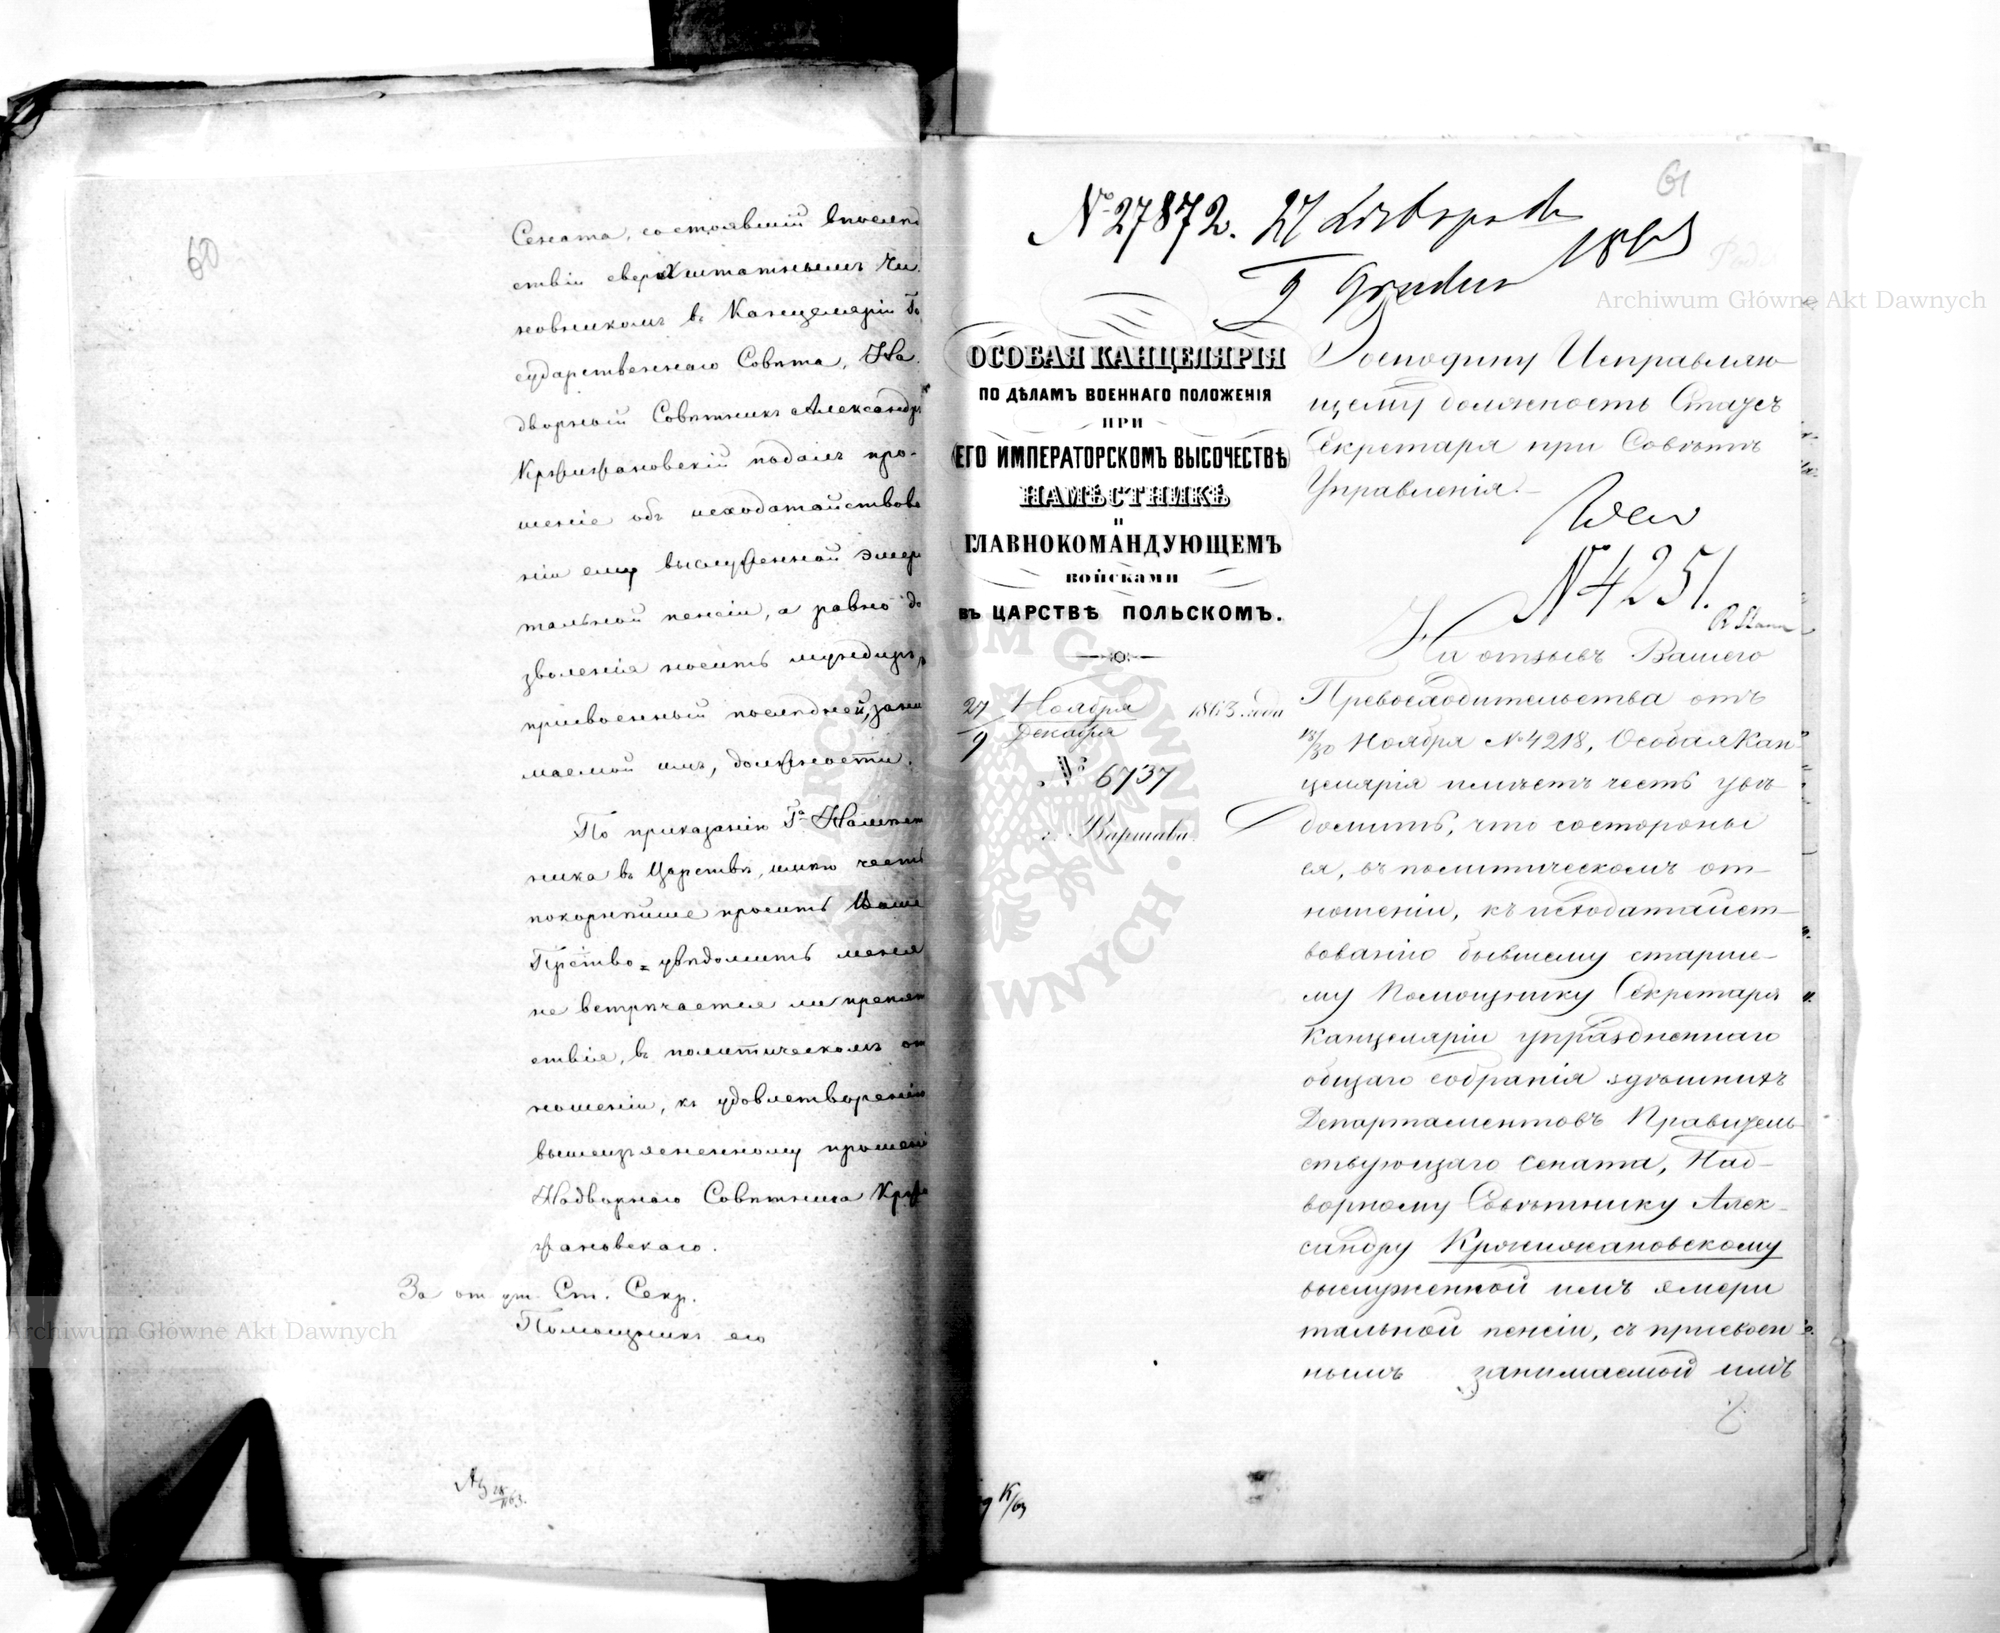 60
Сената, состоявшій впослѣд
ствіи сверхштатнымъ Чи
новникомъ въ Канцеляріи Го
сударственнаго Совѣта, На
дворный Совѣтникъ Александръ
Кржижановскій подалъ про-
шеніе объ исходатайствова
ніи ему выслуженной эмери
тальной пенсіи, а равно до
зволенія носить мундиръ,
присвоенный послѣдней, зани
маемой имъ, должности.
По приказанію Га Намѣст
ника въ Царствѣ, имѣю честь
покорнѣйше просить Ваше
Прство увѣдомить меня
не встрѣчается ли препят
ствія, въ политическомъ от
ношеніи, къ удовлетворенію
вышеизъясненному прошені
Надворнаго Совѣтника Кржи
жановскаго.
За Ст. Секр.
Помощникъ его
61
№ 27872. 27 Listopada
9 Grudnia 1863
ОСОБАЯ КАНЦЕЛЯРІЯ
ПО ДѢЛАМЪ ВОЕННАГО ПОЛОЖЕНІЯ
ПРИ
ЕГО ИМПЕРАТОРСКОМЪ ВЫСОЧЕСТВѢ
НАМѢСТНИКѢ
И
ГЛАВНОКОМАНДУЮЩЕМЪ
ВОЙСКАМИ
ВЪ ЦАРСТВѢ ПОЛЬСКОМЪ.
27 Ноября 1863 года
9 Декабря
№ 6737
г. Варшава.
Господину Исправляю
щему должность Статсъ
Секретаря при Совѣтѣ
Управленія.
№ 4251.
На отзывъ Вашего
Превосходительства отъ
18/30 Ноября № 4218, Особая Кан-
целярія имѣетъ честь увѣ
домить, что со стороны
ея, въ политическомъ от-
ношеніи, къ исходатайст-
вованію бывшему старше-
му Помощнику Секретаря
Канцеляріи упраздненнаго
общаго собранія здѣшнихъ
Департаментовъ Правитель
ствующаго Сената, Над-
ворному Совѣтнику Алек-
сандру Кржижановскому
выслуженной имъ эмери
тальной пенсіи, съ присвоен
нымъ занимаемой имъ
Archiwum Główne Akt Dawnych
Archiwum Główne Akt Dawnych